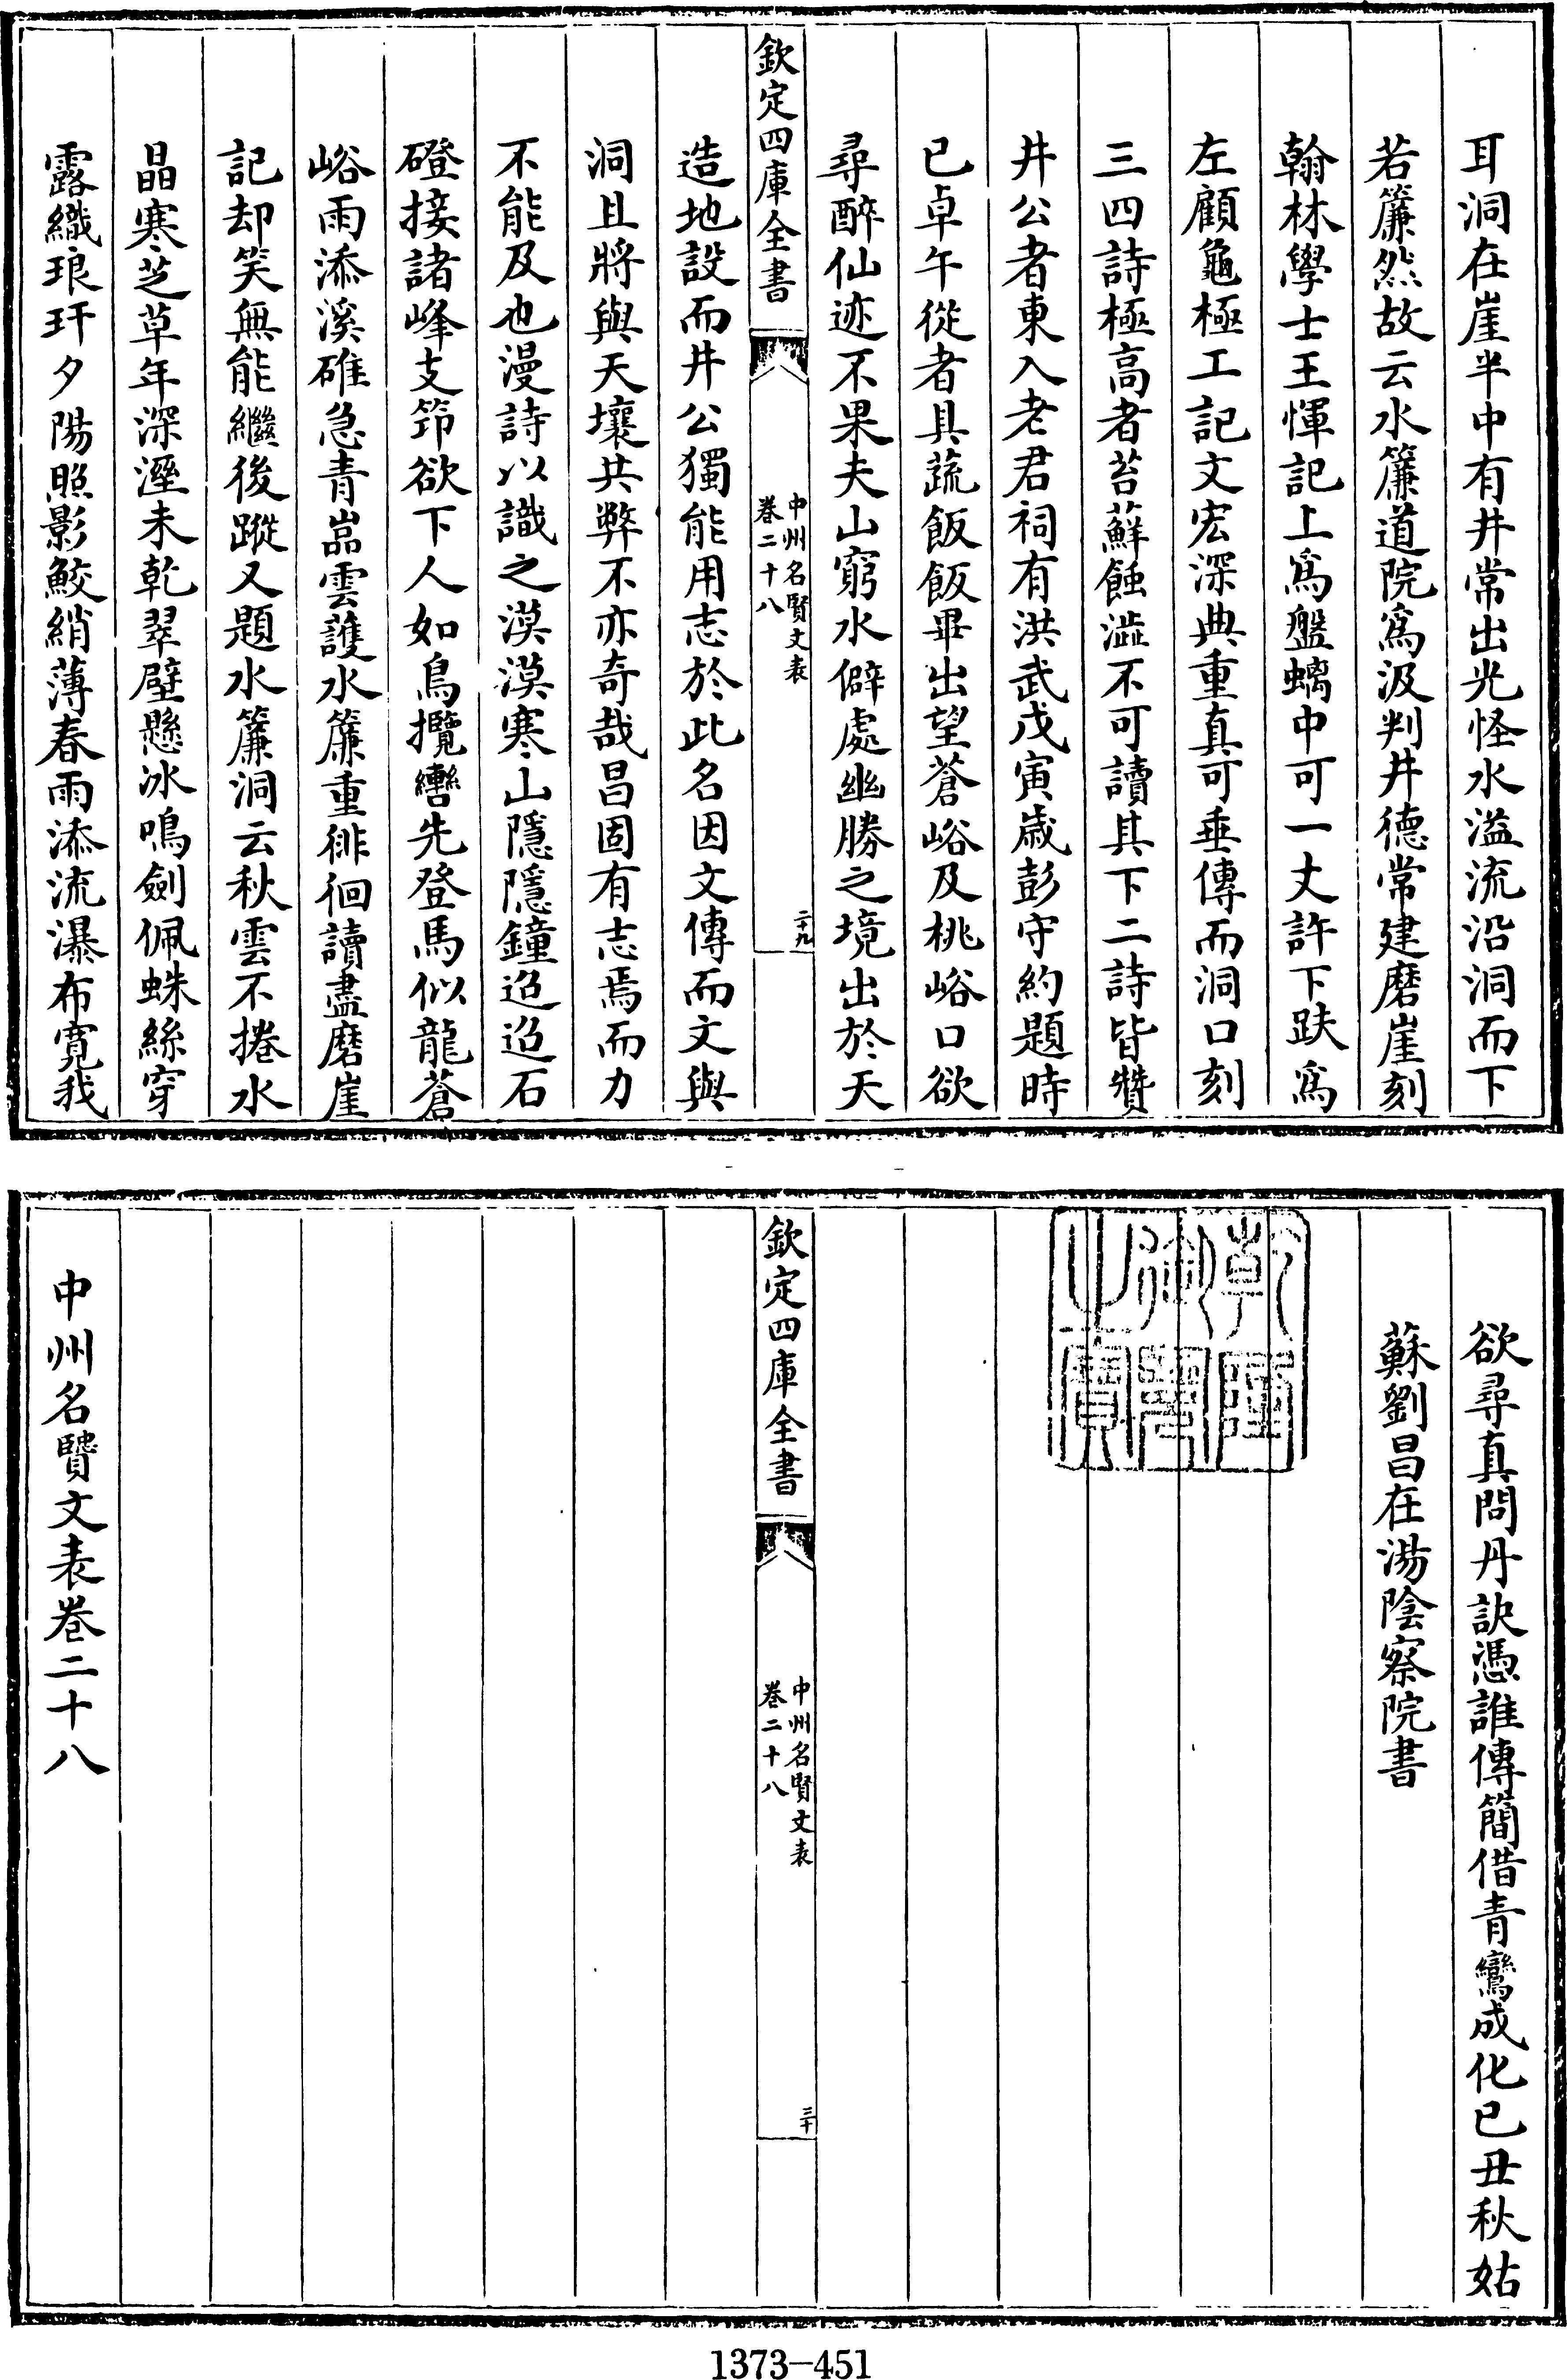 耳洞在崖半中有井常出光怪水溢流沿洞而下
若簾然故云水簾道院為汲判井德常建磨崖刻
翰林學士王惲記上為盤螭中可一丈許下趺為
左顧龜極工記文宏深典重真可垂傳而洞口刻
三四詩極高者苔蘚蝕澁不可讀其下二詩皆贊
井公者東入老君祠有洪武戊寅歲彭守約題時
已卓午從者具蔬飯飯畢出望蒼峪及桃峪口欲
尋醉仙迹不果夫山窮水僻處幽勝之境出於天
欽定四庫全書
中州名賢文表
卷二十八
二十九
造地設而井公獨能用志於此名因文傳而文與
洞且將與天壤共弊不亦奇哉昌固有志焉而力
不能及也漫詩以識之漠漠寒山隱隱鐘迢迢石
磴接諸峰支笻欲下人如鳥攬轡先登馬似龍蒼
峪雨添溪碓急青嵓雲護水簾重徘徊讀盡磨崖
記却笑無能繼後蹤又題水簾洞云秋雲不捲水
晶寒芝草年深溼未乾翠壁懸冰鳴劍佩蛛絲穿
露織琅玕夕陽照影鮫綃薄春雨添流瀑布寬我
欲尋真問丹訣憑誰傳簡借青鸞成化已丑秋姑
蘇劉昌在湯陰察院書
乾隆
御覽
之寶
欽定四庫全書
中州名賢文表
卷二十八
三十
中州名賢文表卷二十八
1373-451